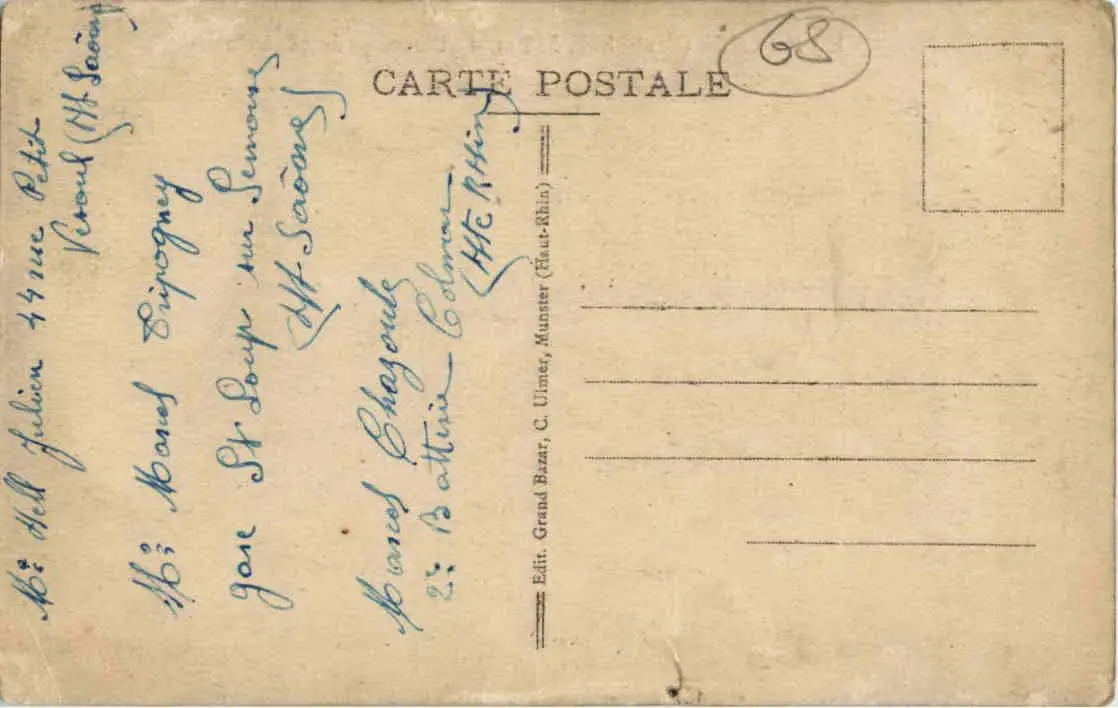 68
CARTE POSTALE
Mr Hell Julien 44 rue Petit
Vesoul (Hte Saône)
Mr Marcel Tripogney
gare St Loup sur Semouse
(Hte Saône)
Marcel Chazoule
2e Batterie Colmar
(Hte Rhin)
Edit. Grand Bazar, C. Ulmer, Munster (Haut-Rhin)